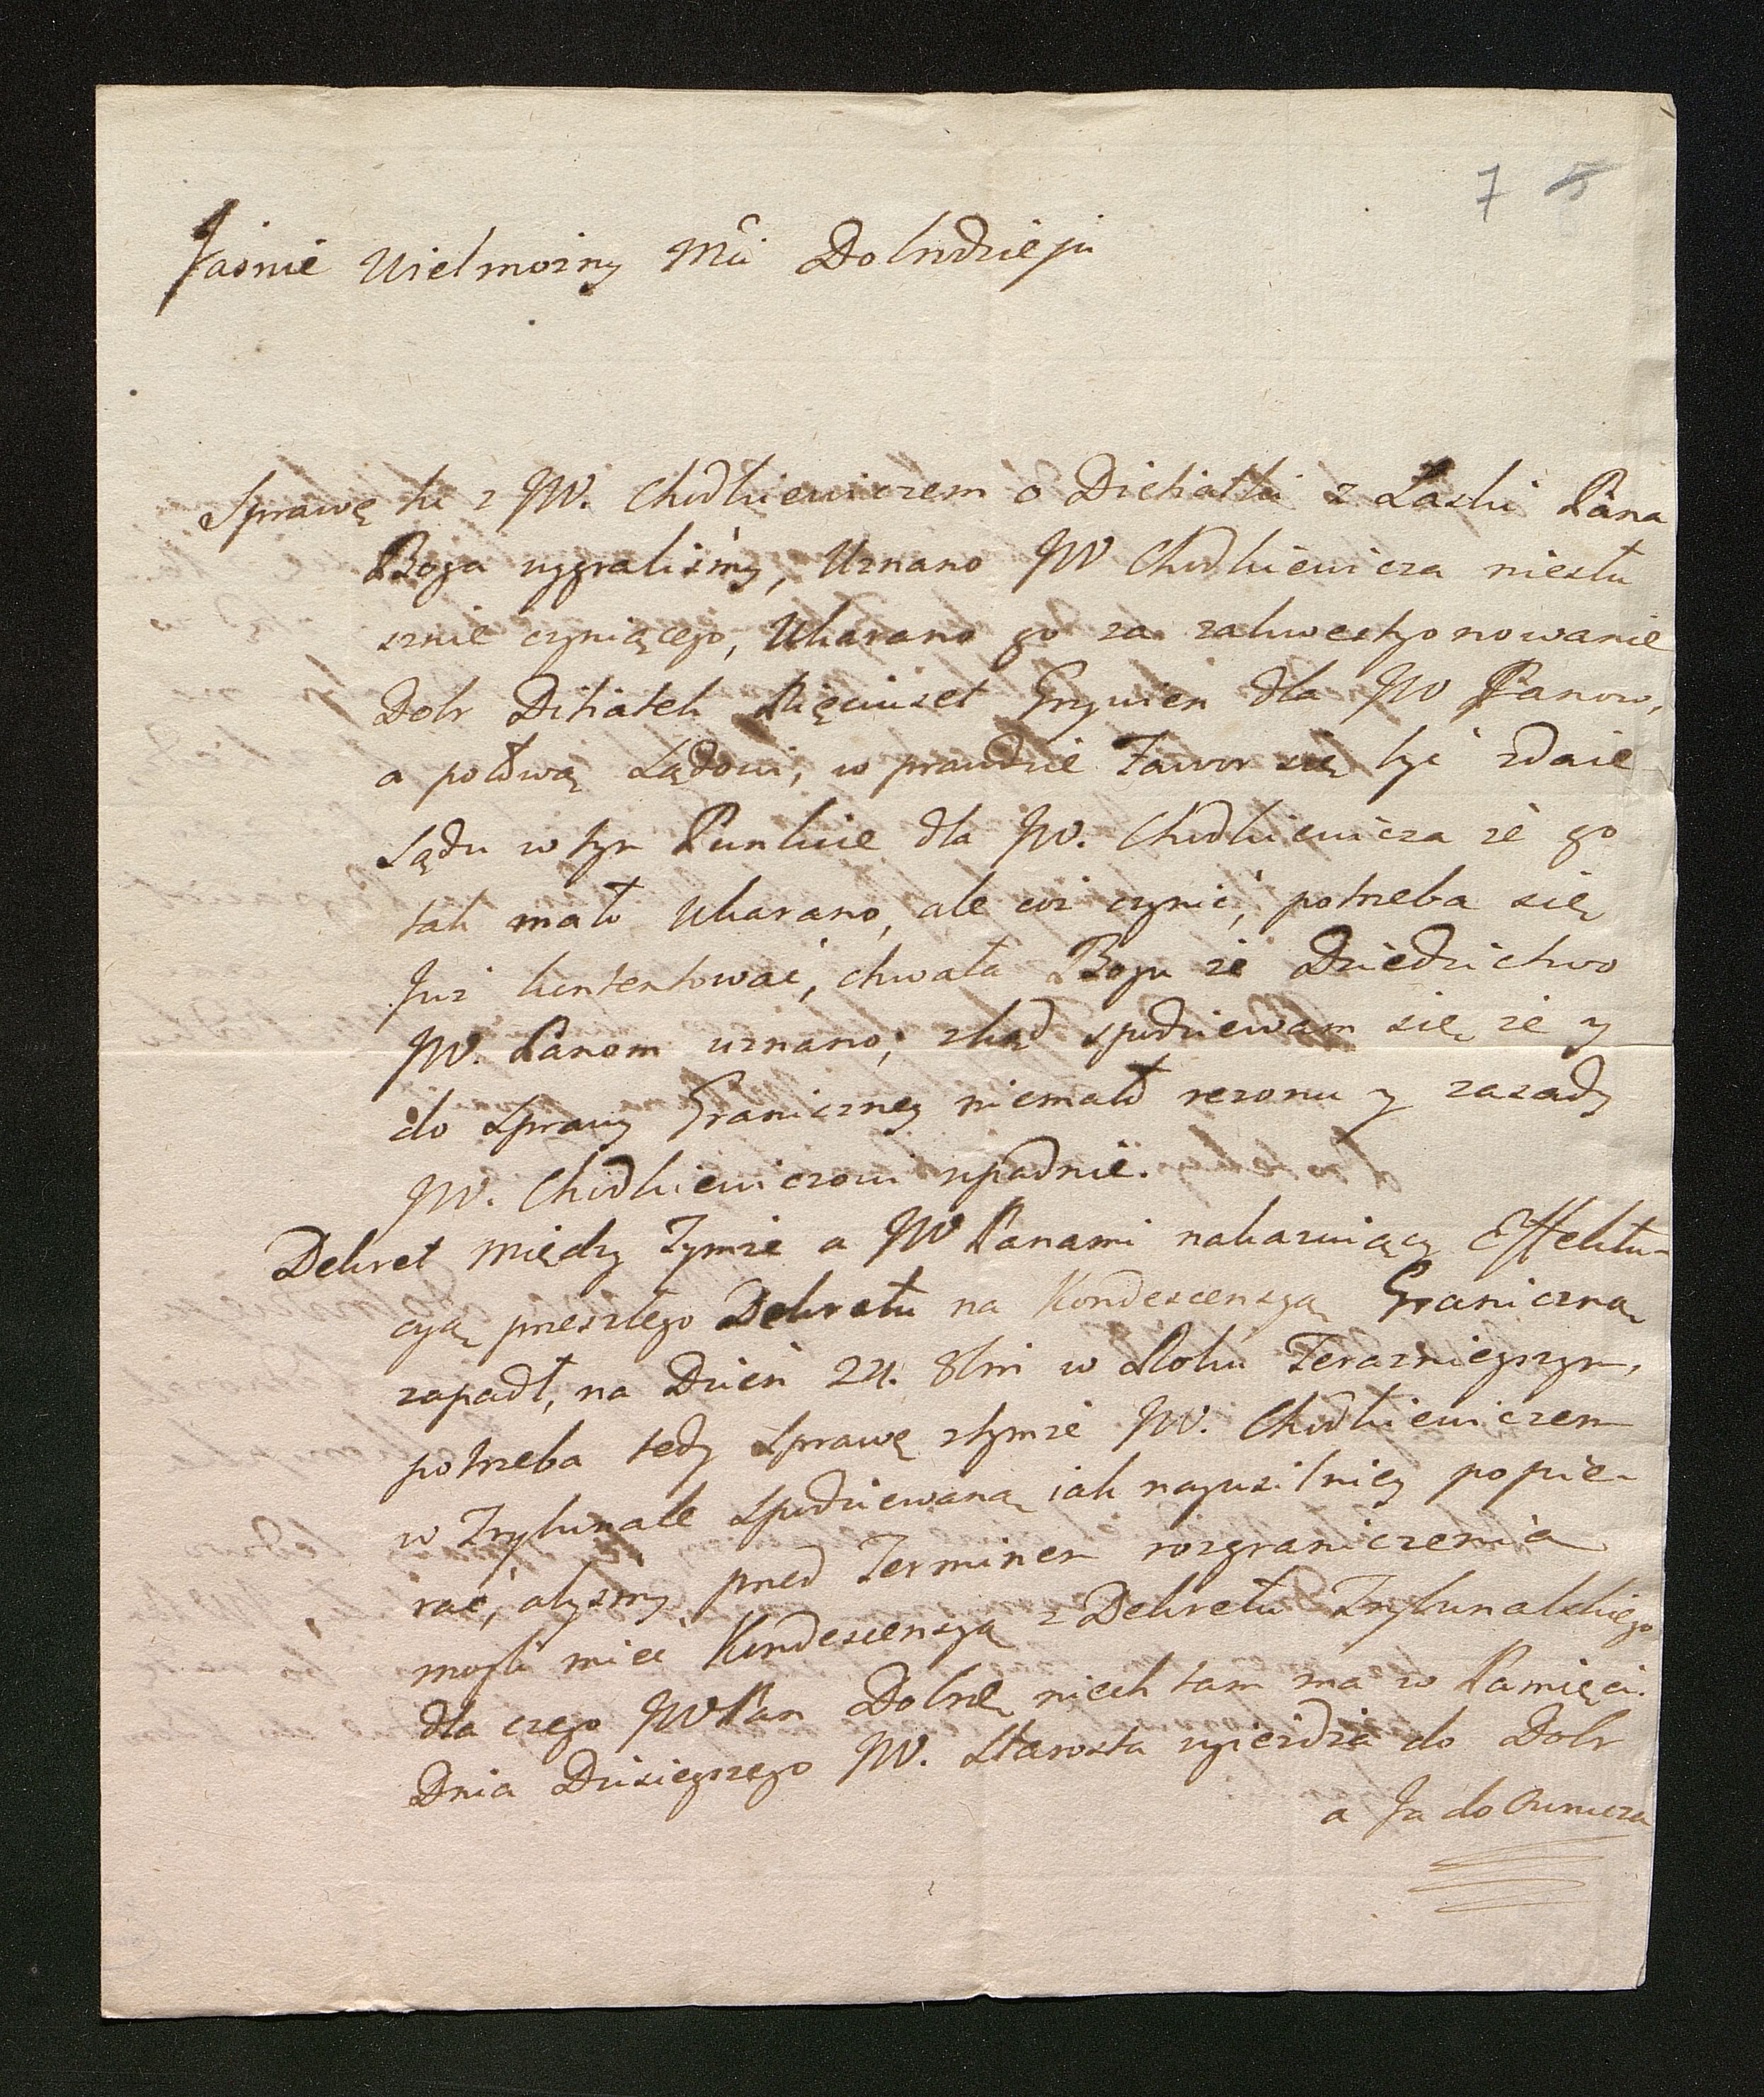 7 5
Jaśnie Wielmożny Mći Dobrodzieju
Sprawę tu z JW. Chodkiewiczem o Dichatki z Łaski Pana
Boga wygraliśmy, Uznano JW Chodkiewicza niesłu
sznie czyniącego, Ukarano go za zakwestyonowanie
Dobr Dihatek Pięciuset Grzywien dla JW Panow,
a połową Sądowi, w prawdzie Fawor się być zdaie
sądu w tym Punkcie dla JW. Chodkiewicza że go
tak mało Ukarano, ale coż czynić, potrzeba się
Już kontentować, chwała Bogu że Dziedzictwo
JW. Panom uznano; ztąd spodziewam się że y
do Sprawy Graniczney niemało rezonu y zasady
JW. Chodkiewiczowi upadnie.
Dekret między Tymże a JW Panami nakazuiący Effektu-
cyą przeszłego Dekretu na Kondescensyą Graniczną
zapadł, na Dzień 24. 8bri w Roku Teraznieyszym,
potrzeba tedy Sprawę ztymże JW. Chodkiewiczem
w Trybunale spodziewaną iak nayusilniey popie-
rać, abyśmy przed Terminem rozgraniczenia
mogli mieć Kondescensyą z Dekretu Trybunalskiego
dla czego JWPan Dobrź niech tam ma w Pamięci.
Dnia Dzisieyszego JW. Starosta wyieżdża do Dobr
a Ja do